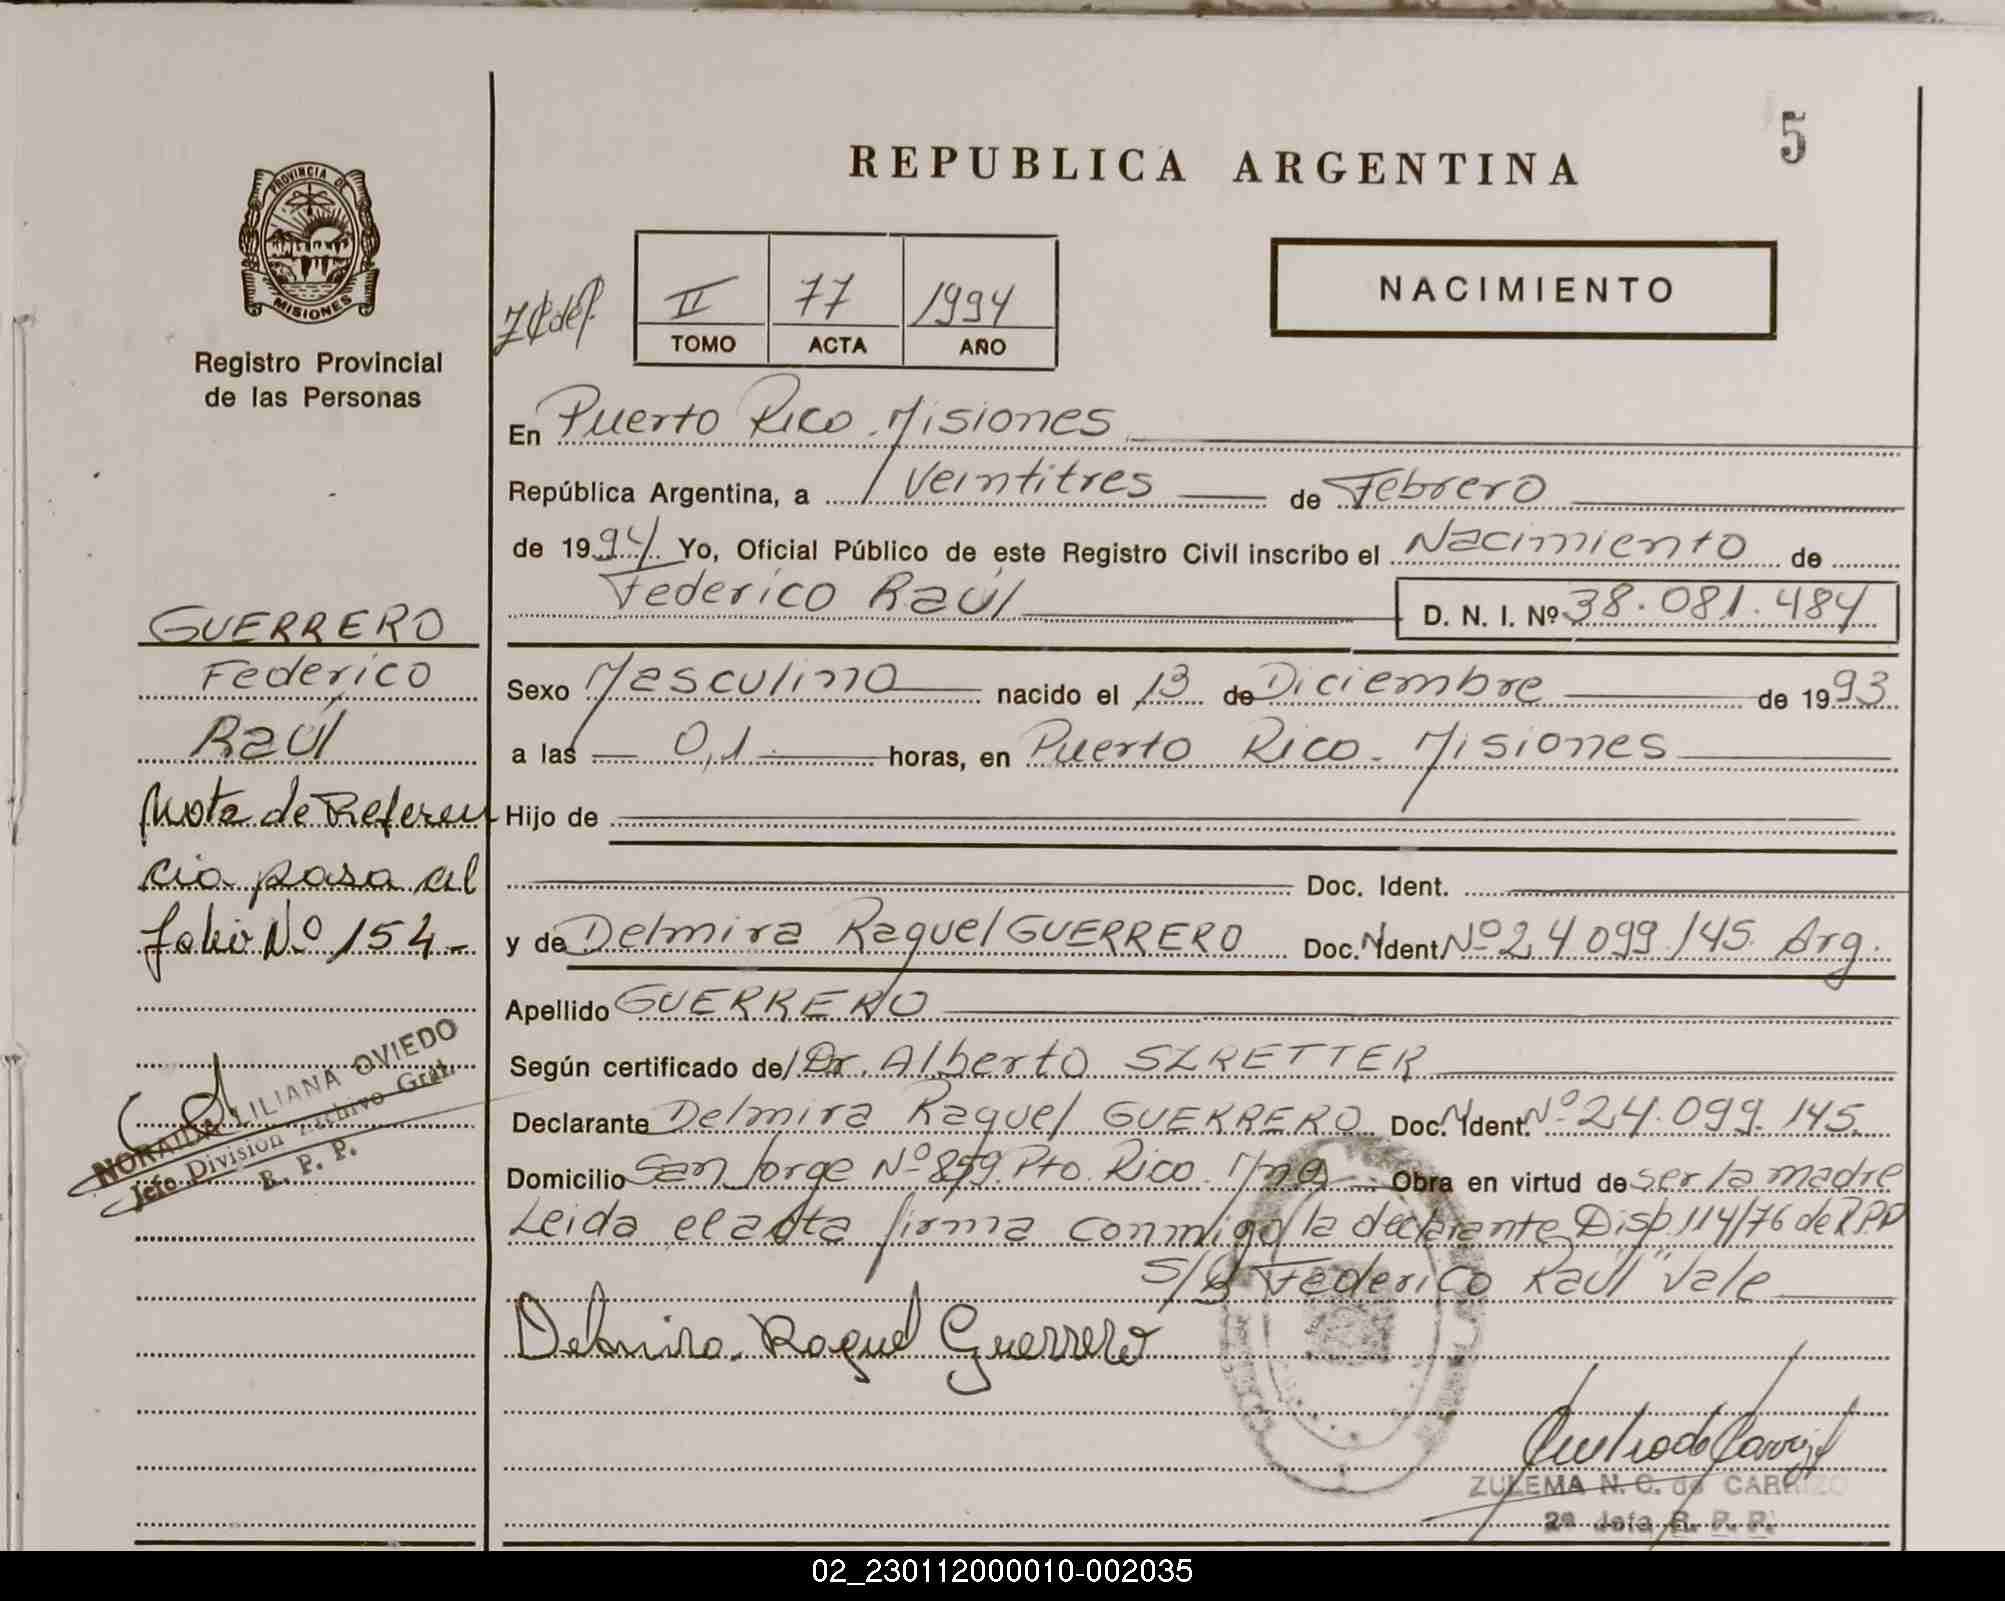 5
REPUBLICA ARGENTINA
PROVINCIA DE
MISIONES
Registro Provincial
de las Personas
II 77 1994
TOMO ACTA AÑO
NACIMIENTO
En Puerto Rico. Misiones
República Argentina, a Veintitres de Febrero
de 1994 Yo, Oficial Público de este Registro Civil inscribo el Nacimiento de
Federico Raúl D. N. I. Nº 38.081.484
Sexo Masculino nacido el 13 de Diciembre de 1993
a las 0,1 horas, en Puerto Rico. Misiones
Hijo de
Doc. Ident.
y de Delmira Raquel GUERRERO Doc. Ident. Nº 24.099.145. Arg.
Apellido GUERRERO
Según certificado de/ Dr. Alberto SZRETTER
Declarante Delmira Raquel GUERRERO Doc. Ident. Nº 24.099.145.
Domicilio San Jorge Nº 859. Pto. Rico. Mnes Obra en virtud de ser la madre
Leida el acta firma conmigo la declarante Disp. 114/76 de R.P.P
S/b Federico Raúl "Vale
Delmira Raquel Guerrero
ZULEMA N. C. de CARRIZO
2ª Jefa R. P. P.
GUERRERO
Federico
Raúl
Nota de Referen
cia pasa al
folio Nº 154-
NORAIDA LILIANA OVIEDO
Jefe División Archivo Gral.
R. P. P.
02_230112000010-002035